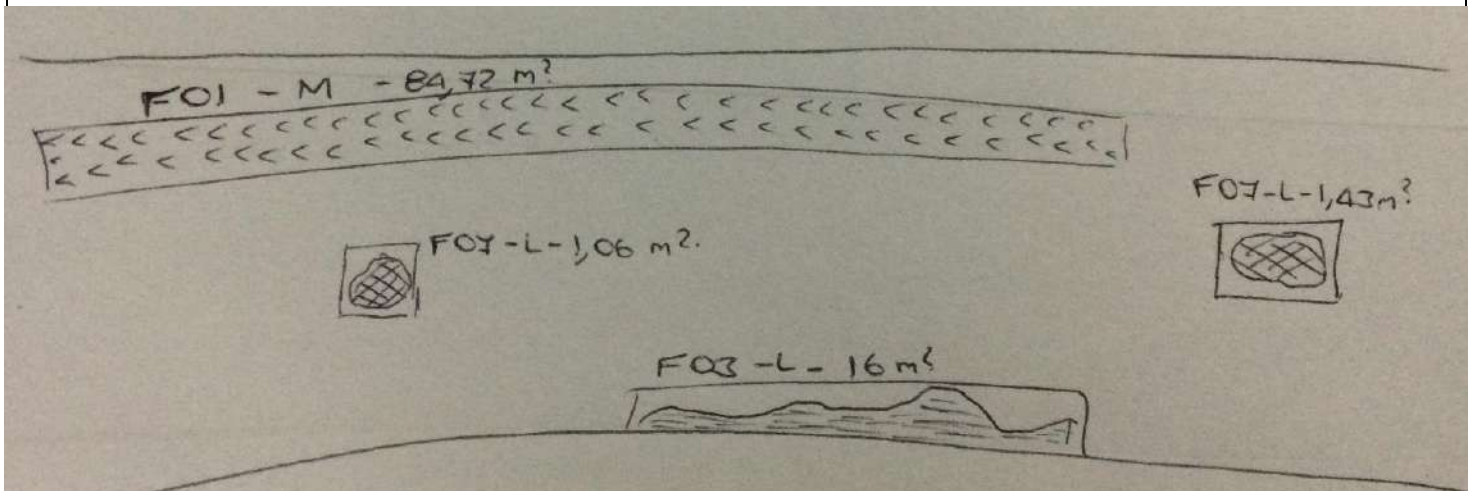 F01 - M - 84,72 m²
F07-L-1,43m²
F07-L-1,06 m².
F03-L- 16 m²